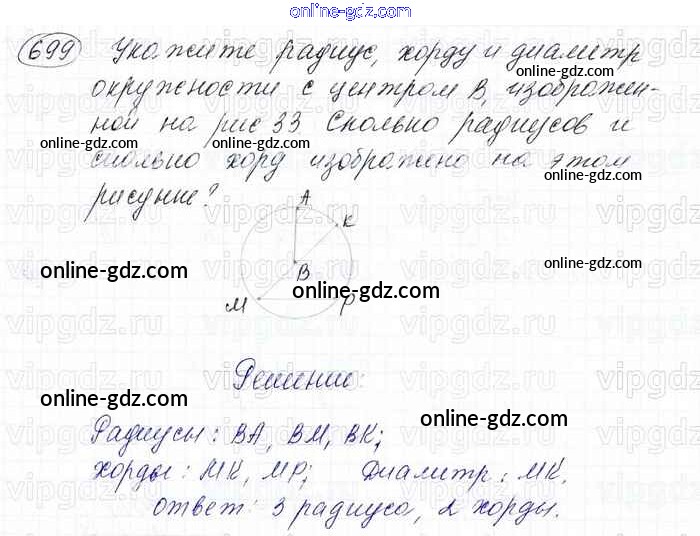 online-gdz.com
699 Укажите радиус, хорду и диаметр
online-gdz.com
окружности с центром В, изображен-
ной на рис 33. Сколько радиусов и
online-gdz.com online-gdz.com
сколько хорд изображено на этом
online-gdz.com
рисунке?
A
К
online-gdz.com В online-gdz.com
online-gdz.com
М Р
Решение:
online-gdz.com online-gdz.com
Радиусы: ВА, ВМ, ВК;
Хорды: МК, МР; Диаметр: МК.
online-gdz.com online-gdz.com
ответ: 3 радиуса, 2 хорды.